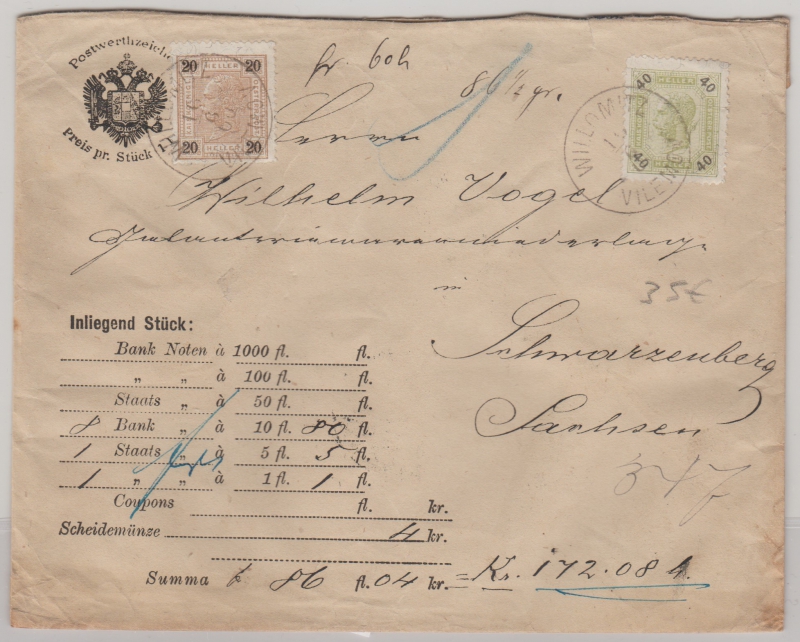 Postwerthzeichen
Preis pr. Stück 1
20 HELLER 20
20 20
fr. 60h
86 ½ gr.
40 HELLER 40
40 40
WILLOMITZ
VILÉMOV
Herrn
Wilhelm Vogel
Galanteriewarenniederlage
in
35€
Schwarzenberg
Sachsen
347
Inliegend Stück:
Bank Noten à 1000 fl. fl.
„ „ à 100 fl. fl.
Staats „ à 50 fl. fl.
8 Bank „ à 10 fl. 80 fl.
1 Staats „ à 5 fl. 5 fl.
1 „ „ à 1 fl. 1 fl.
Coupons fl. kr.
Scheidemünze 4 kr.
Summa 86 fl. 04 kr. = Kr. 172.08 h.